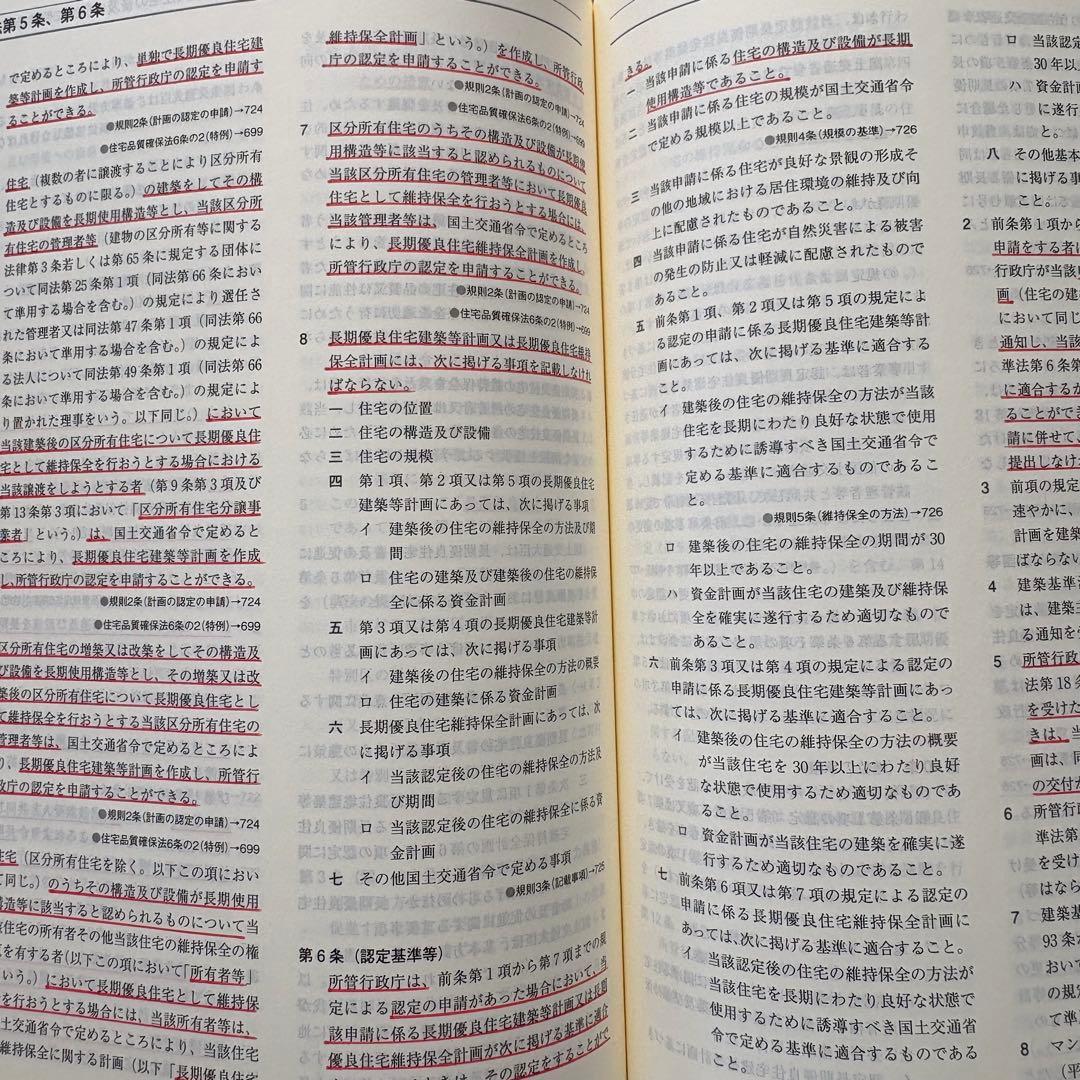 法第5条、第6条
で定めるところにより、単独で長期優良住宅建
築等計画を作成し、所管行政庁の認定を申請す
ることができる。
●規則2条(計画の認定の申請)→724
●住宅品質確保法6条の2(特例)→699
住宅（複数の者に譲渡することにより区分所有
住宅とするものに限る。）の建築をしてその構
造及び設備を長期使用構造等とし、当該区分所
有住宅の管理者等（建物の区分所有等に関する
法律第3条若しくは第65条に規定する団体に
ついて同法第25条第1項（同法第66条におい
て準用する場合を含む。）の規定により選任さ
れた管理者又は同法第47条第1項（同法第66
条において準用する場合を含む。）の規定によ
る法人について同法第49条第1項（同法第66
条において準用する場合を含む。）の規定によ
り置かれた理事をいう。以下同じ。）において
当該建築後の区分所有住宅について長期優良住
宅として維持保全を行おうとする場合における
当該譲渡をしようとする者（第9条第3項及び
第13条第3項において「区分所有住宅分譲事
業者」という。）は、国土交通省令で定めると
ころにより、長期優良住宅建築等計画を作成
し、所管行政庁の認定を申請することができる。
●規則2条(計画の認定の申請)→724
●住宅品質確保法6条の2(特例)→699
区分所有住宅の増築又は改築をしてその構造及
び設備を長期使用構造等とし、その増築又は改
築後の区分所有住宅について長期優良住宅とし
て維持保全を行おうとする当該区分所有住宅の
管理者等は、国土交通省令で定めるところによ
り、長期優良住宅建築等計画を作成し、所管行
政庁の認定を申請することができる。
●規則2条(計画の認定の申請)→724
●住宅品質確保法6条の2(特例)→699
住宅（区分所有住宅を除く。以下この項におい
て同じ。）のうちその構造及び設備が長期使用
構造等に該当すると認められるものについて当
該住宅の所有者その他当該住宅の維持保全の権
原を有する者（以下この項において「所有者等」
という。）において長期優良住宅として維持保
全を行おうとする場合には、当該所有者等は、
国土交通省令で定めるところにより、当該住宅
の維持保全に関する計画（以下「長期優良住宅
維持保全計画」という。）を作成し、所管行政
庁の認定を申請することができる。
●規則2条(計画の認定の申請)→724
●住宅品質確保法6条の2(特例)→699
7 区分所有住宅のうちその構造及び設備が長期使
用構造等に該当すると認められるものについて
当該区分所有住宅の管理者等において長期優良
住宅として維持保全を行おうとする場合には、
当該管理者等は、国土交通省令で定めるところ
により、長期優良住宅維持保全計画を作成し、
所管行政庁の認定を申請することができる。
●規則2条(計画の認定の申請)→724
●住宅品質確保法6条の2(特例)→699
8 長期優良住宅建築等計画又は長期優良住宅維持
保全計画には、次に掲げる事項を記載しなけれ
ばならない。
一 住宅の位置
二 住宅の構造及び設備
三 住宅の規模
四 第1項、第2項又は第5項の長期優良住宅
建築等計画にあっては、次に掲げる事項
イ 建築後の住宅の維持保全の方法及び期
間
ロ 住宅の建築及び建築後の住宅の維持保
全に係る資金計画
五 第3項又は第4項の長期優良住宅建築等計
画にあっては、次に掲げる事項
イ 建築後の住宅の維持保全の方法の概要
ロ 住宅の建築に係る資金計画
六 長期優良住宅維持保全計画にあっては、次
に掲げる事項
イ 当該認定後の住宅の維持保全の方法及
び期間
ロ 当該認定後の住宅の維持保全に係る資
金計画
七 その他国土交通省令で定める事項
●規則3条(記載事項)→725
第6条（認定基準等）
所管行政庁は、前条第1項から第7項までの規
定による認定の申請があった場合において、当
該申請に係る長期優良住宅建築等計画又は長期
優良住宅維持保全計画が次に掲げる基準に適合
するときは、その認定をすることがで
きる。
一 当該申請に係る住宅の構造及び設備が長期
使用構造等であること。
二 当該申請に係る住宅の規模が国土交通省令
で定める規模以上であること。
●規則4条(規模の基準)→726
三 当該申請に係る住宅が良好な景観の形成そ
の他の地域における居住環境の維持及び向
上に配慮されたものであること。
四 当該申請に係る住宅が自然災害による被害
の発生の防止又は軽減に配慮されたもので
あること。
五 前条第1項、第2項又は第5項の規定によ
る認定の申請に係る長期優良住宅建築等計
画にあっては、次に掲げる基準に適合する
こと。
イ 建築後の住宅の維持保全の方法が当該
住宅を長期にわたり良好な状態で使用
するために誘導すべき国土交通省令で
定める基準に適合するものであるこ
と。
●規則5条(維持保全の方法)→726
ロ 建築後の住宅の維持保全の期間が30
年以上であること。
ハ 資金計画が当該住宅の建築及び維持保
全を確実に遂行するため適切なもので
あること。
六 前条第3項又は第4項の規定による認定の
申請に係る長期優良住宅建築等計画にあっ
ては、次に掲げる基準に適合すること。
イ 建築後の住宅の維持保全の方法の概要
が当該住宅を30年以上にわたり良好
な状態で使用するため適切なものであ
ること。
ロ 資金計画が当該住宅の建築を確実に遂
行するため適切なものであること。
七 前条第6項又は第7項の規定による認定の
申請に係る長期優良住宅維持保全計画に
あっては、次に掲げる基準に適合すること。
イ 当該認定後の住宅の維持保全の方法が
当該住宅を長期にわたり良好な状態で
使用するために誘導すべき国土交通省
令で定める基準に適合するものである
こと。
ロ 当該認定
30年以上
ハ 資金計画
に遂行
と。
八 その他基本
に掲げる事
2 前条第1項から
申請をする者に
行政庁が当該
画（住宅の建
において同じ
通知し、当該
準法第6条第
に適合するか
ることができ
請に併せて、
提出しなけ
3 前項の規定
速やかに、
計画を建築
ばならない
4 建築基準
は、建築主
る通知を
5 所管行政
法第18条
を受けた
きは、当
画は、同
の交付が
6 所管行
準法第
を受け
はなら
7 建築基
93条
おいて
の規定
て準
8 マン
（平